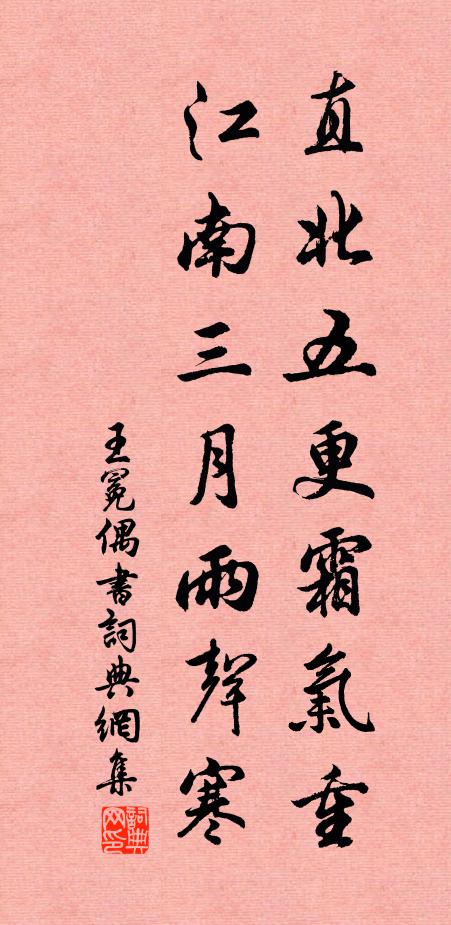 直北五更霜氣重
江南三月雨聲寒
王冕偶書詞典網集
詞典網印